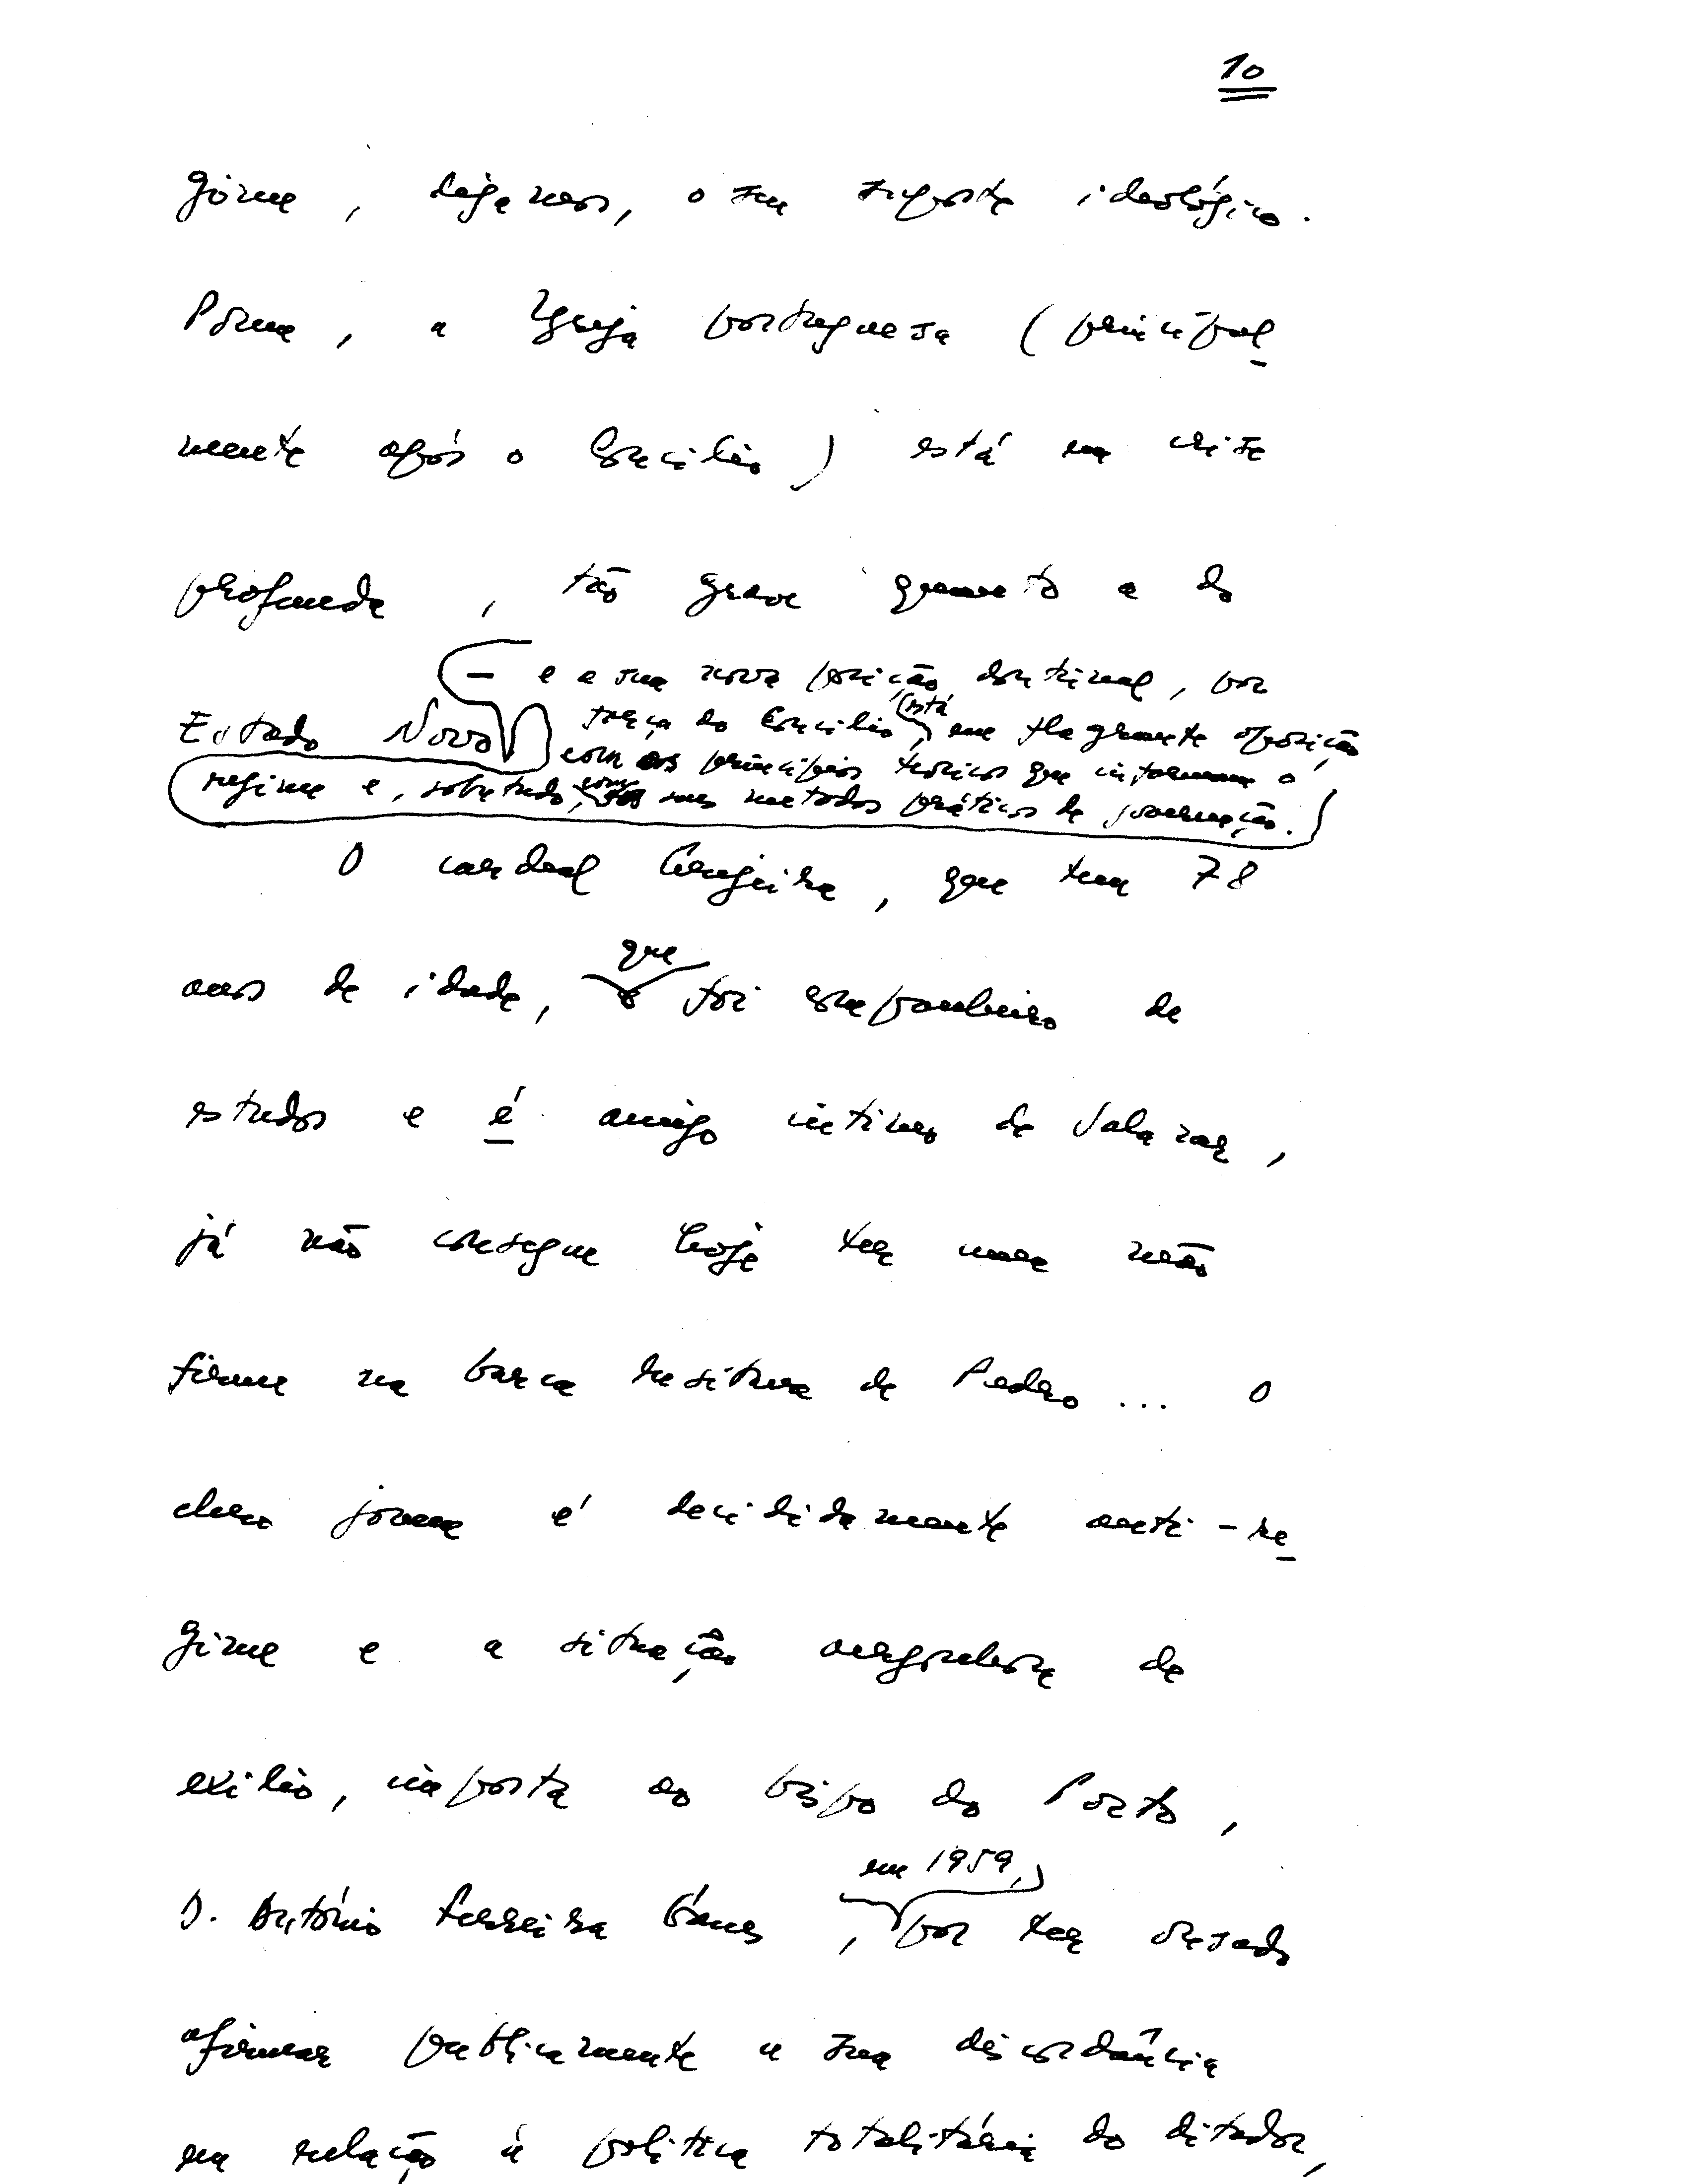 10
gime, digamos, o seu suporte ideológico.
Porém, a Igreja portuguesa (principal-
mente após o Concílio) está em crise
profunda, tão grave quanto a do
Estado Novo — e a sua nova posição doutrinal, por
força do Concílio, está em flagrante oposição
com os princípios teóricos que informam o
regime e, sobretudo, com seus métodos práticos de governação.
O cardeal Cerejeira, que tem 78
anos de idade, que foi companheiro de
estudos e é amigo íntimo de Salazar,
já não consegue hoje ter uma mão
firme na barca lusitana de Pedro... O
clero jovem é decididamente anti-re-
gime e a situação de
exílio, imposta ao bispo do Porto,
D. António Ferreira Gomes, em 1959, por ter ousado
afirmar publicamente a sua discordância
em relação à política totalitária do ditador,